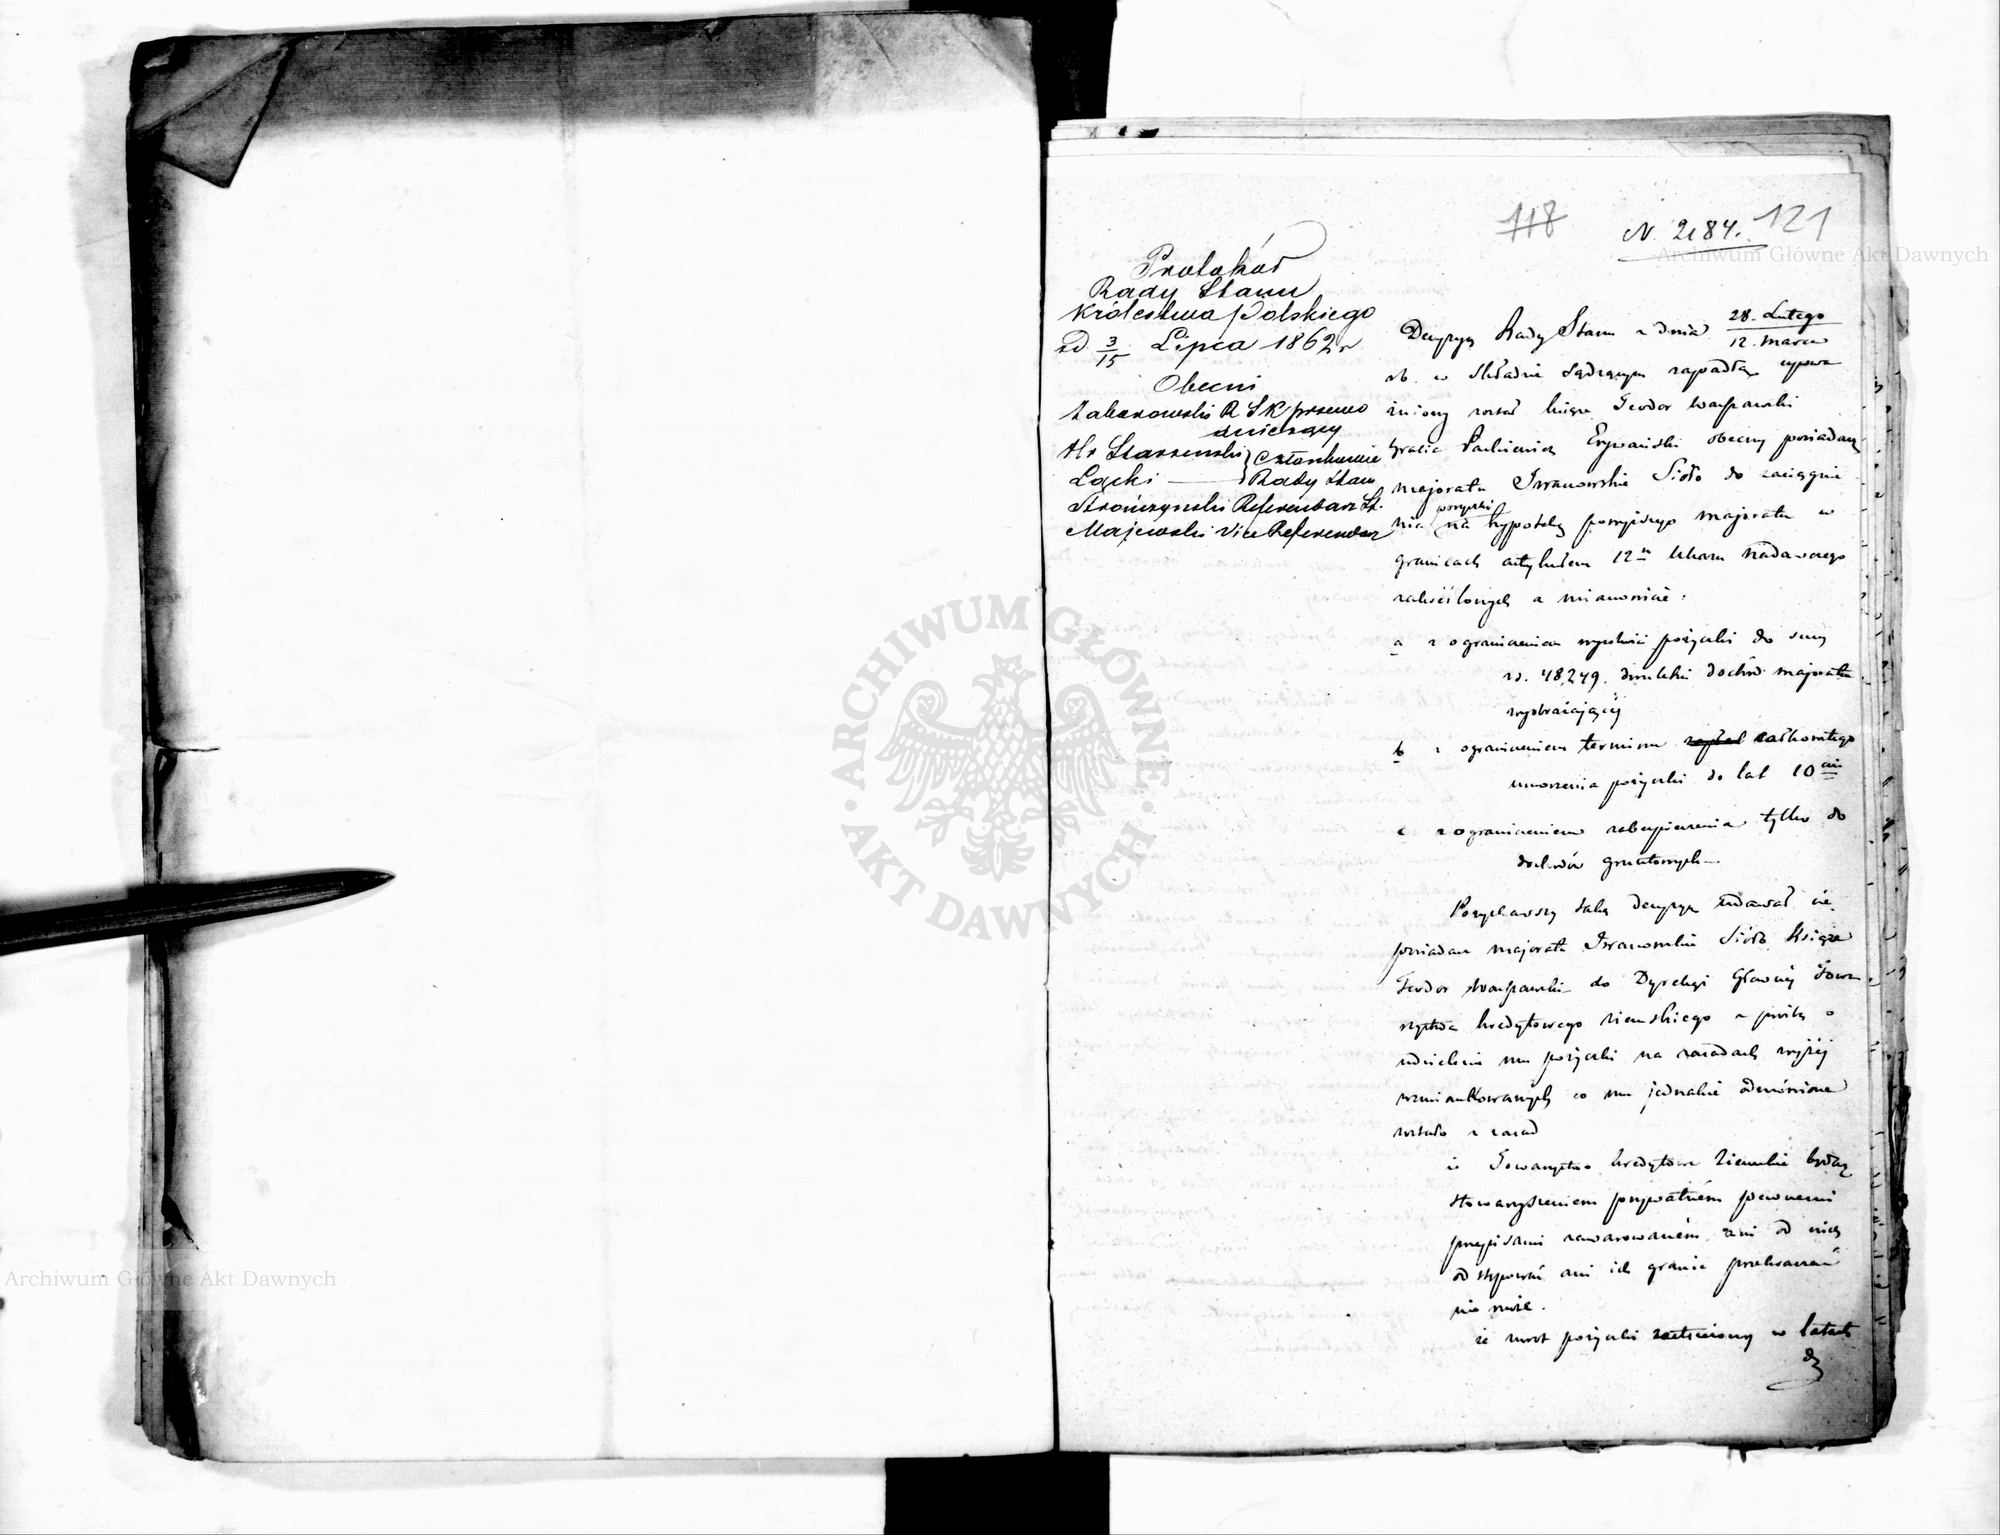 118
N. 2184.
121
Protokół
Rady Stanu
Królestwa Polskiego
od 3/15 Lipca 1862 r
Obecni
Łabęcki R S K przewo
dniczący
Hr Starzeński } Członkowie
Łącki — } Rady Stanu
Strończyński Referendarz St.
Majewski Vice Referendarz
Decyzyą Rady Stanu z dnia 28. Lutego / 12. Marca
rb. w składzie sądzącym zapadłą upowa
żniony został książę Teodor Warszawski
Hrabia Paskiewicz Erywański obecny posiadacz
majoratu Iwanowskie Sioło do zaciągnie
nia pożyczki na hypotekę powyższego majoratu w
granicach artykułem 12m Ukazu nadawczego
zakreślonych a mianowicie:
a z ograniczeniem wysokości pożyczki do sumy
rs. 48,249. dwuletni dochód majoratu
wyobrażającej
b z ograniczeniem terminu całkowitego
umorzenia pożyczki do lat 10ciu
c z ograniczeniem zabezpieczenia tylko do
dochodów gruntowych—
Pozyskawszy taką decyzyą udawał się
posiadacz majoratu Iwanowskie Sioło Książe
Teodor Warszawski do Dyrekcyi Głównej Towa
rzystwa kredytowego ziemskiego z prośbą o
udzielenie mu pożyczki na zasadach wyżej
wzmiankowanych co mu jednakże odmówione
zostało z zasad
że Towarzystwo kredytowe Ziemskie będąc
stowarzyszeniem prywatném pewnemi
przepisami zawarowaném ani od nich
odstępować ani ich granic przekraczać
nie może.
że zwrot pożyczki w latach
Archiwum Główne Akt Dawnych
Archiwum Główne Akt Dawnych
ARCHIWUM GŁÓWNE
AKT DAWNYCH